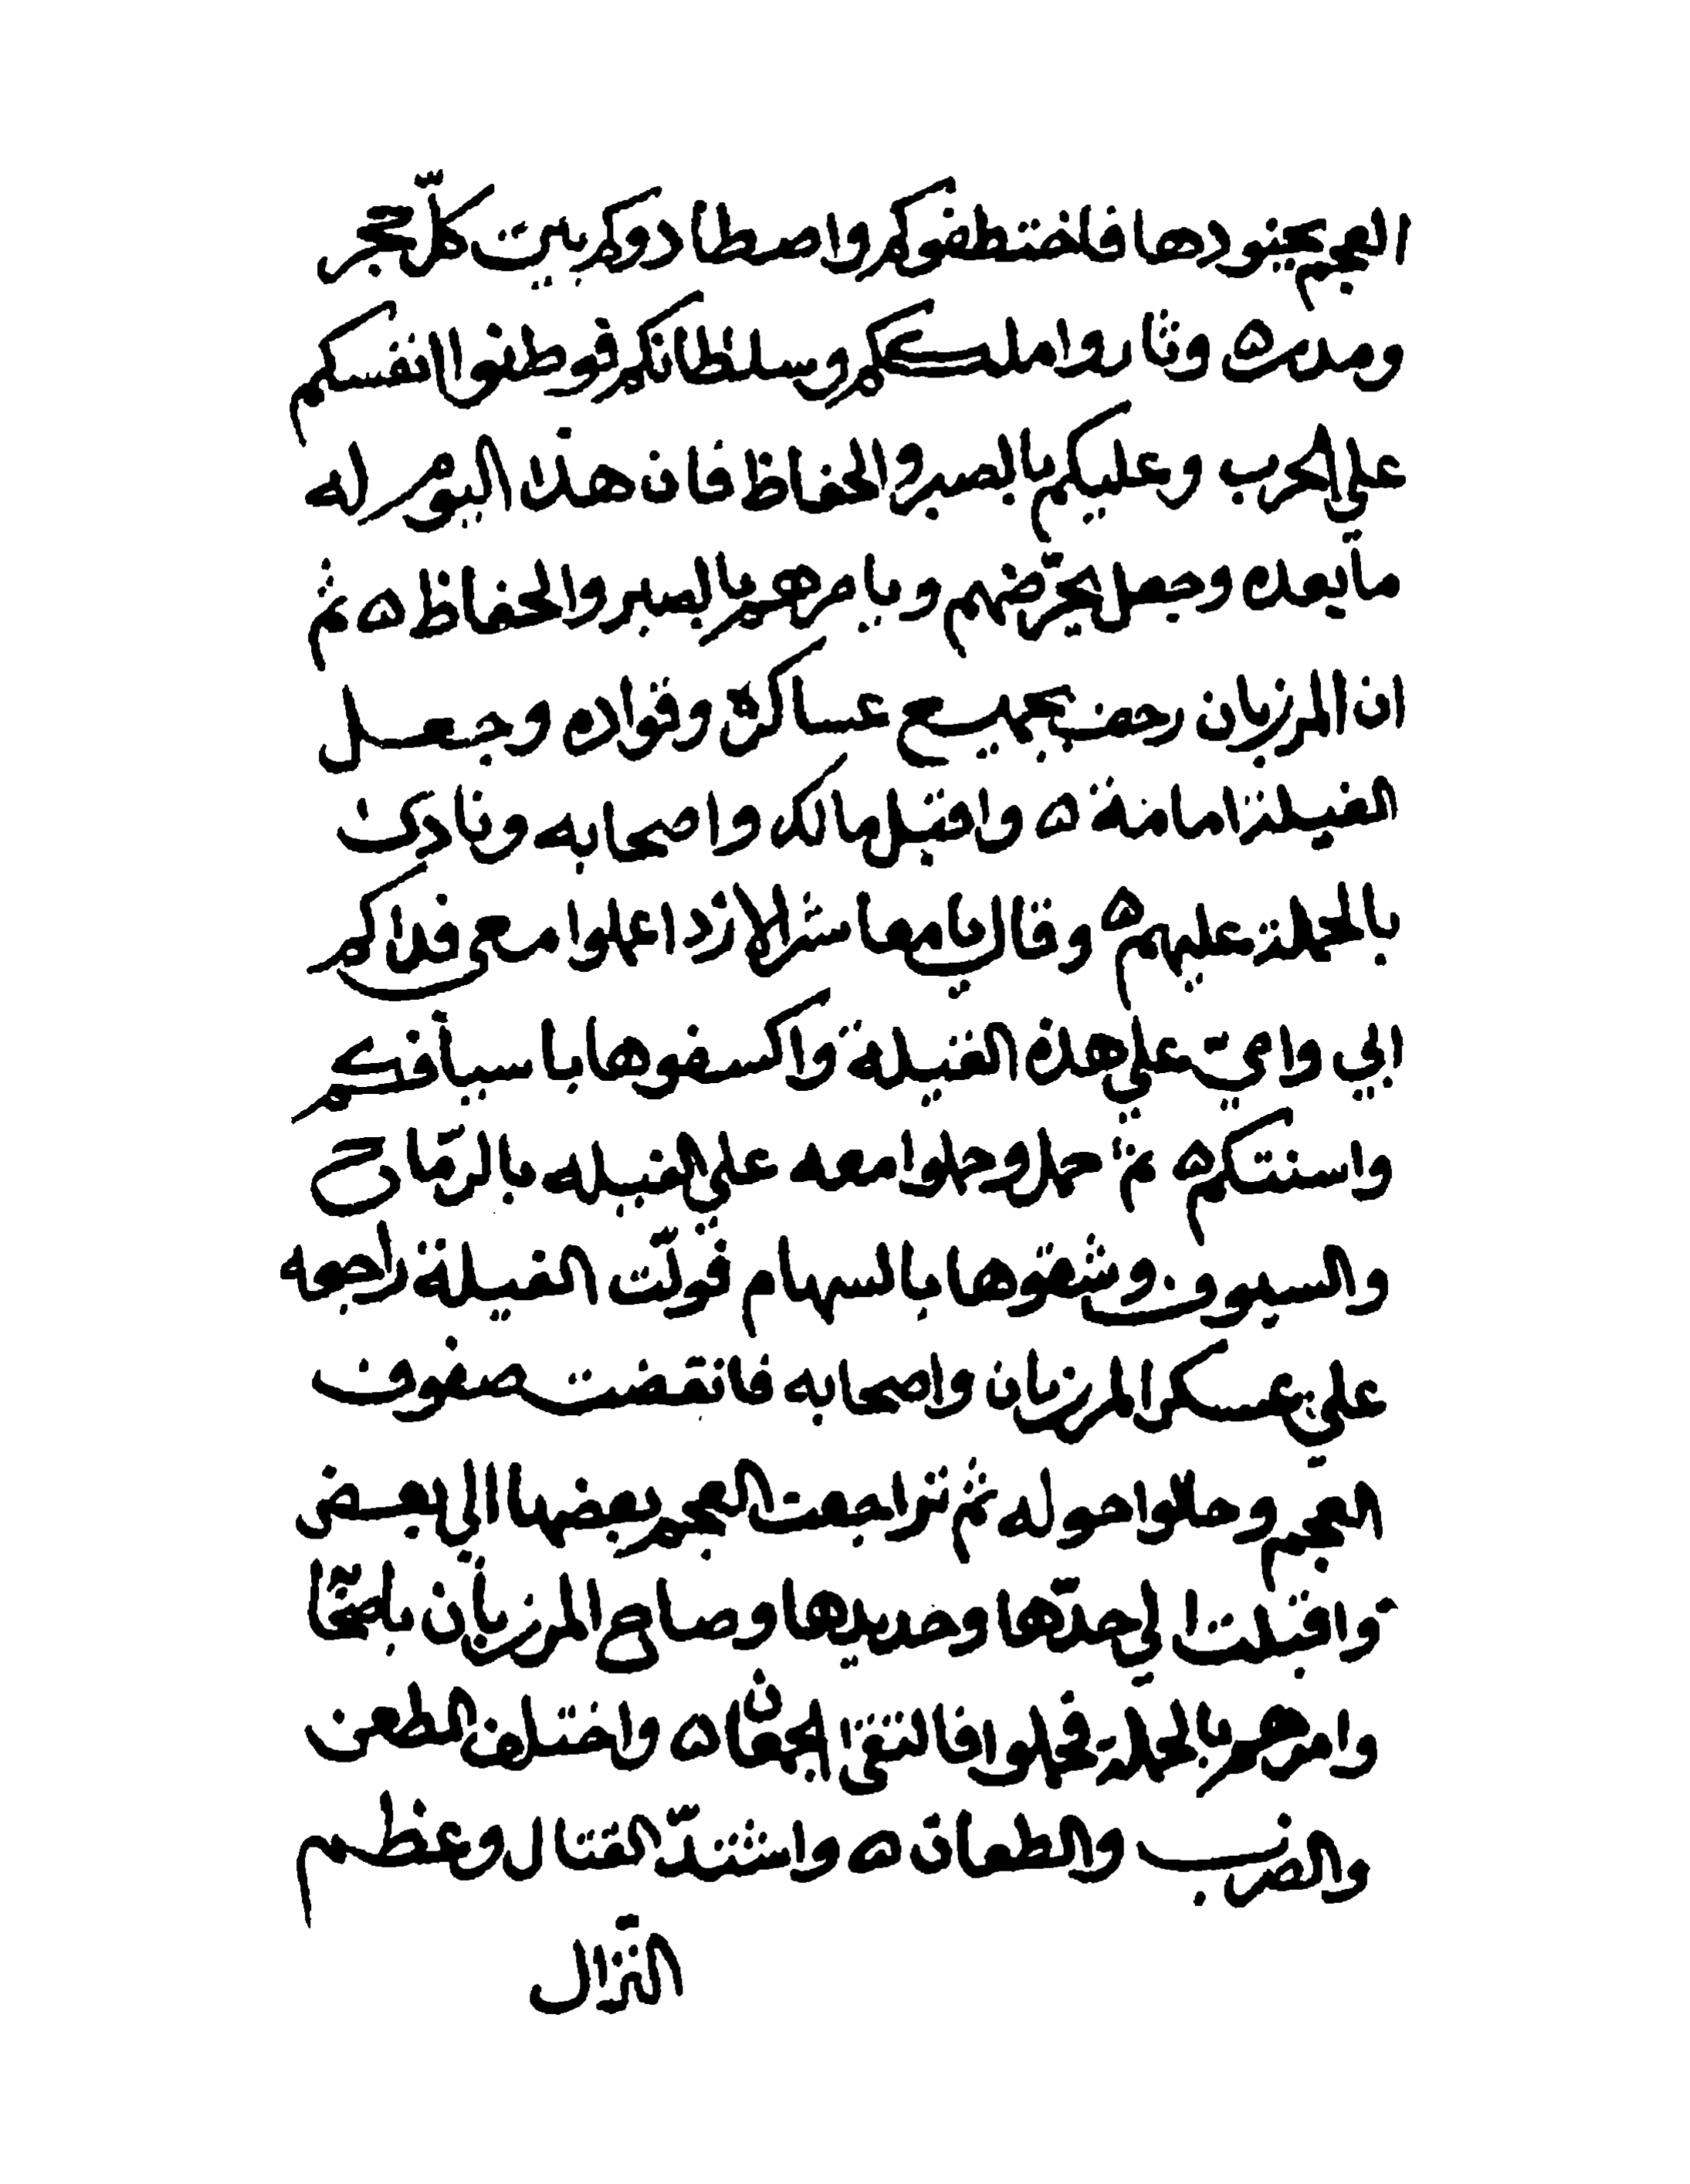 العجم بجنودها فاختطفوكم واصطادوكم بين كلّ حجر
ومدر ۵ وثاروا ملككم وسلطانكم فوطنوا انفسكم
على الحرب وعليكم بالصبر والحفاظ فان هذا اليوم له
ما بعده وجعل يحرّضهم ويامرهم بالصبر والحفاظ ۵ ثم
ان المرزبان زحف بجميع عساكره وقواده وجعل
الفيلة امامه ۵ واقبل مالك واصحابه ونادى
بالحملة عليهم ۵ وقال يا معاشر الازد احملوا معي فداكم
ابي وامي على هذه الفيلة واكسفوها باسيافكم
واسنتكم ۵ ثم حمل وحملوا معه على الفيله بالرماح
والسيوف وشقوها بالسهام فولّت الفيلة راجعه
على عسكر المرزبان واصحابه فانقضت صفوف
العجم وحالوا حوله ثم تراجعت العجم بعضها الى بعض
واقبلت الي حدّها وحديدها وصاح المرزبان باصحابه
وامرهم بالحملة فحملوا فالتقى الجمعان ۵ واختلف الطعن
والضرب والطعان ۵ واشتدّ القتال وعظم
النزال